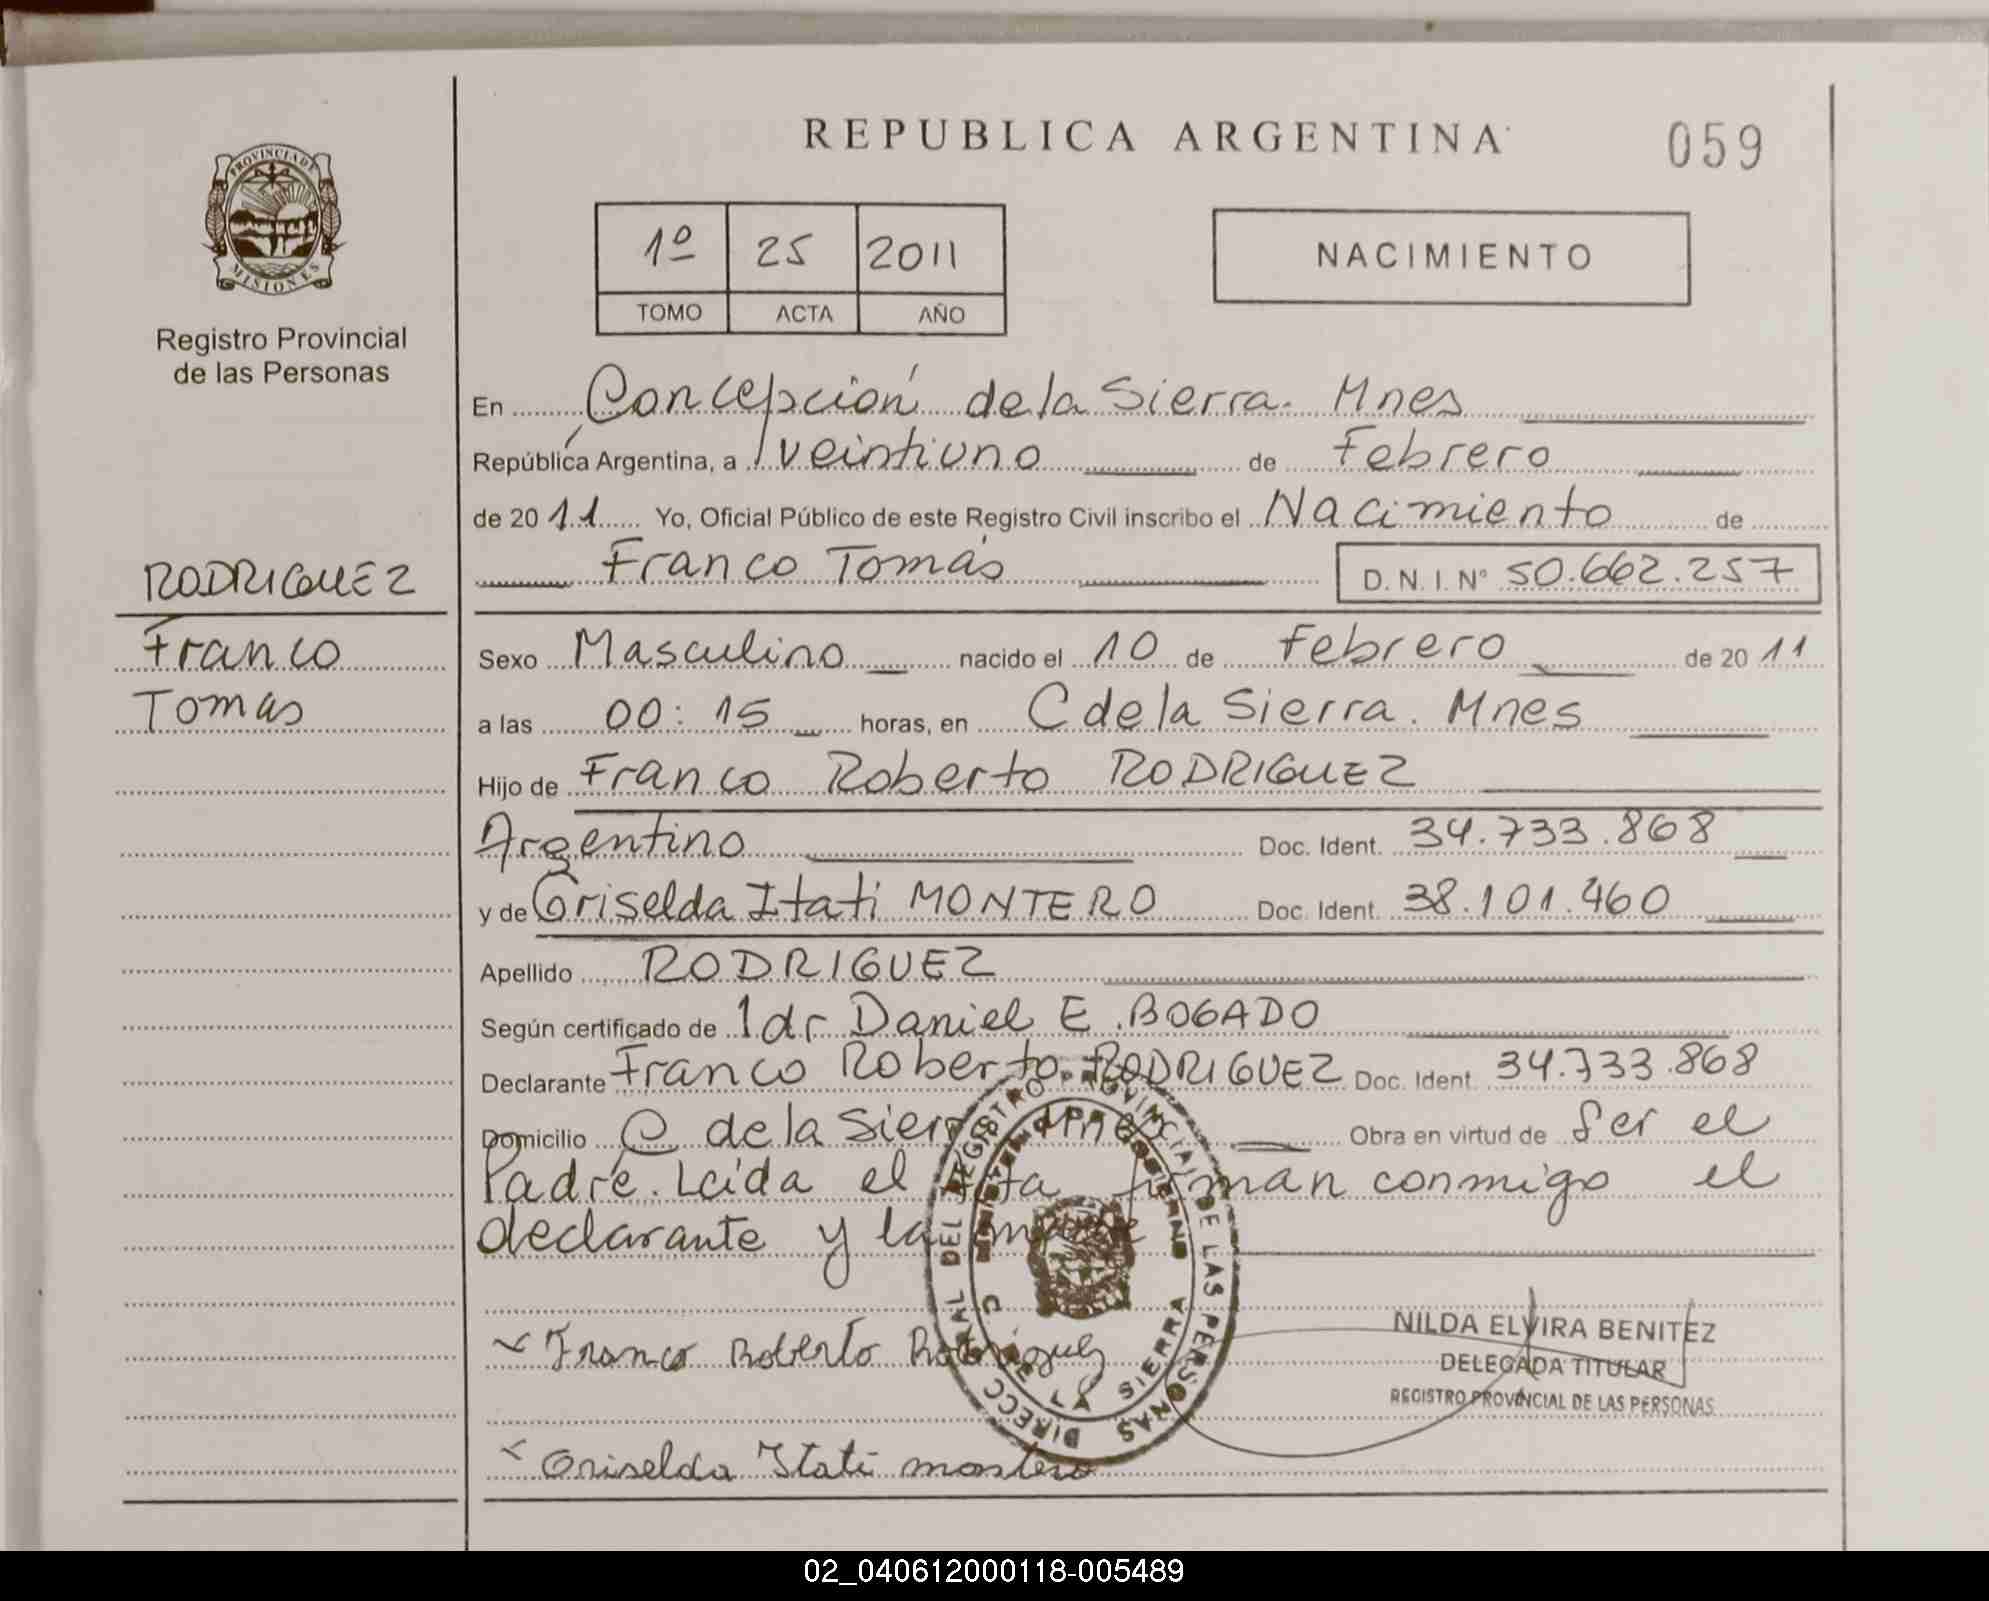 REPUBLICA ARGENTINA
059
PROVINCIA DE
MISIONES
Registro Provincial
de las Personas
1º 25 2011
TOMO ACTA AÑO
NACIMIENTO
En Concepción de la Sierra. Mnes
República Argentina, a veintiuno de Febrero
de 2011 Yo, Oficial Público de este Registro Civil inscribo el Nacimiento de
Franco Tomás D.N.I. Nº 50.662.257
RODRIGUEZ
Franco
Tomas
Sexo Masculino nacido el 10 de febrero de 2011
a las 00:15 horas, en C de la Sierra. Mnes
Hijo de Franco Roberto RODRIGUEZ
Argentino Doc. Ident. 34.733.868
y de Griselda Itati MONTERO Doc. Ident. 38.101.460
Apellido RODRIGUEZ
Según certificado de 1 dr Daniel E. BOGADO
Declarante Franco Roberto RODRIGUEZ Doc. Ident. 34.733.868
Domicilio C de la Sierra Mnes Obra en virtud de Ser el
Padre. Leida el Acta firman conmigo el
declarante y la madre
DIRECC GRAL DEL REGISTRO PROVINCIAL DE LAS PERSONAS
C DE LA SIERRA
Franco Roberto Rodriguez
NILDA ELVIRA BENITEZ
DELEGADA TITULAR
REGISTRO PROVINCIAL DE LAS PERSONAS
Griselda Itati montero
02_040612000118-005489